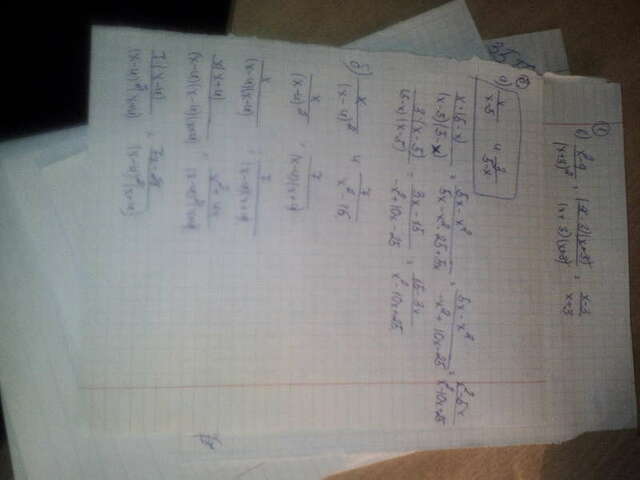 ①
1) (x²-9)/(x+3)² = ((x-3)(x+3))/((x+3)(x+3)) = (x-3)/(x+3)
②
а) x/(x-5) и 3/(5-x)
(x·(5-x))/((x-5)(5-x)) = (5x-x²)/(5x-x²-25+5x) = (5x-x²)/(-x²+10x-25) = (x²-5x)/(x²-10x+25)
(3(x-5))/((5-x)(x-5)) = (3x-15)/(-x²+10x-25) = (15-3x)/(x²-10x+25)
б) x/(x-4)² и 7/(x²-16)
x/(x-4)² ; 7/((x-4)(x+4))
x/((x-4)(x-4)) ; 7/((x-4)(x+4))
x(x+4)/((x-4)(x-4)(x+4)) ; (x²+4x)/((x-4)²(x+4))
7(x-4)/((x-4)²(x+4)) = (7x-28)/((x-4)²(x+4))